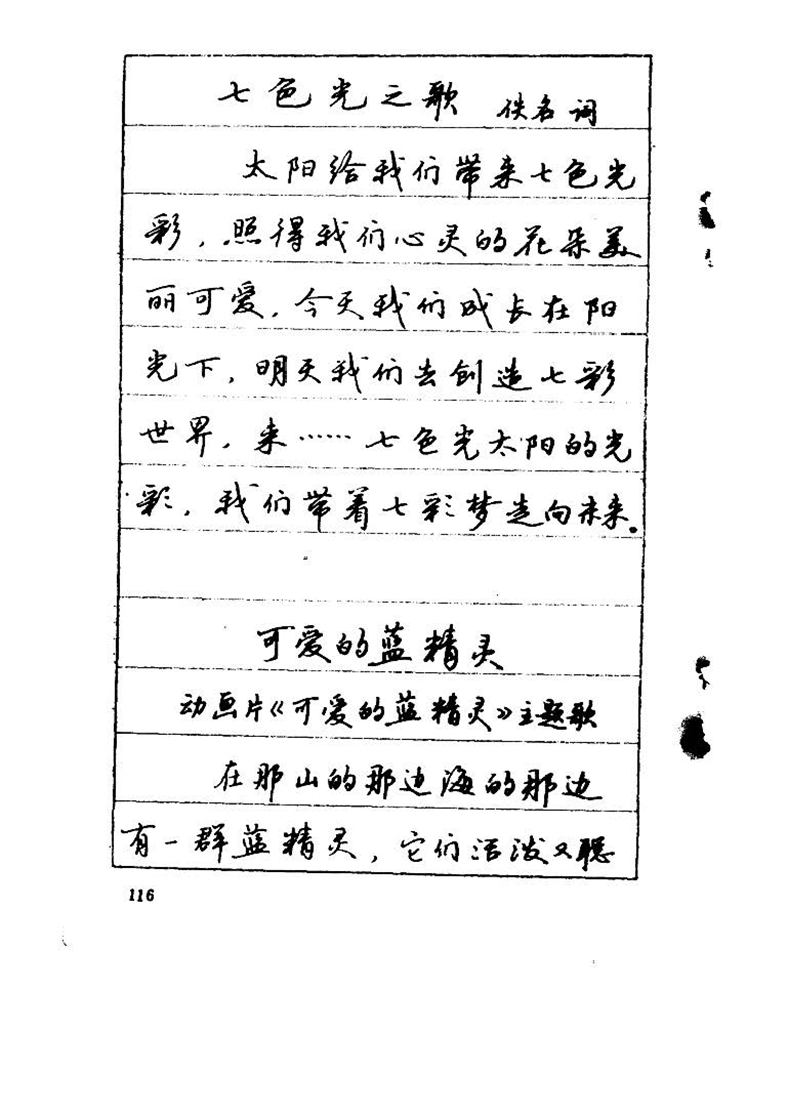 七色光之歌 佚名词
太阳给我们带来七色光
彩，照得我们心灵的花朵美
丽可爱，今天我们成长在阳
光下，明天我们去创造七彩
世界，来……七色光太阳的光
彩，我们带着七彩梦走向未来。
可爱的蓝精灵
动画片《可爱的蓝精灵》主题歌
在那山的那边海的那边
有一群蓝精灵，它们活泼又聪
116